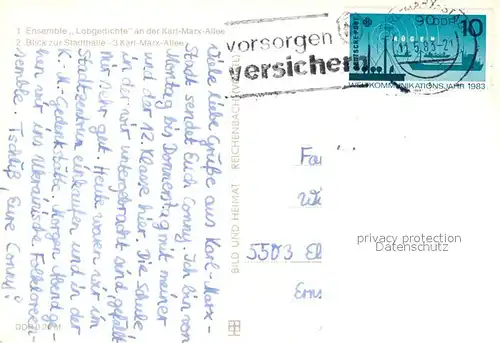 1 Ensemble „Lobgedichte" an der Karl-Marx-Allee
2 Blick zur Stadthalle - 3 Karl-Marx-Allee
Viele liebe Grüße aus Karl-Marx-
Stadt sendet Euch Conny. Ich bin von
Montag bis Donnerstag mit meiner
und der 12. Klasse hier. Die Schule
in der wir untergebracht sind gefällt
mir sehr gut. Heute waren wir im
Stadtzentrum einkaufen und in der
K.-M.-Gedenkstätte. Morgen Abend ge-
hen wir ins Ukrainische Folkloreen-
semble. Tschüß, Eure Conny!
DDR 0,20 M
BILD UND HEIMAT REICHENBACH
vorsorgen
versichern
90
DDR
10
WELTKOMMUNIKATIONSJAHR 1983
5503
privacy protection
Datenschutz